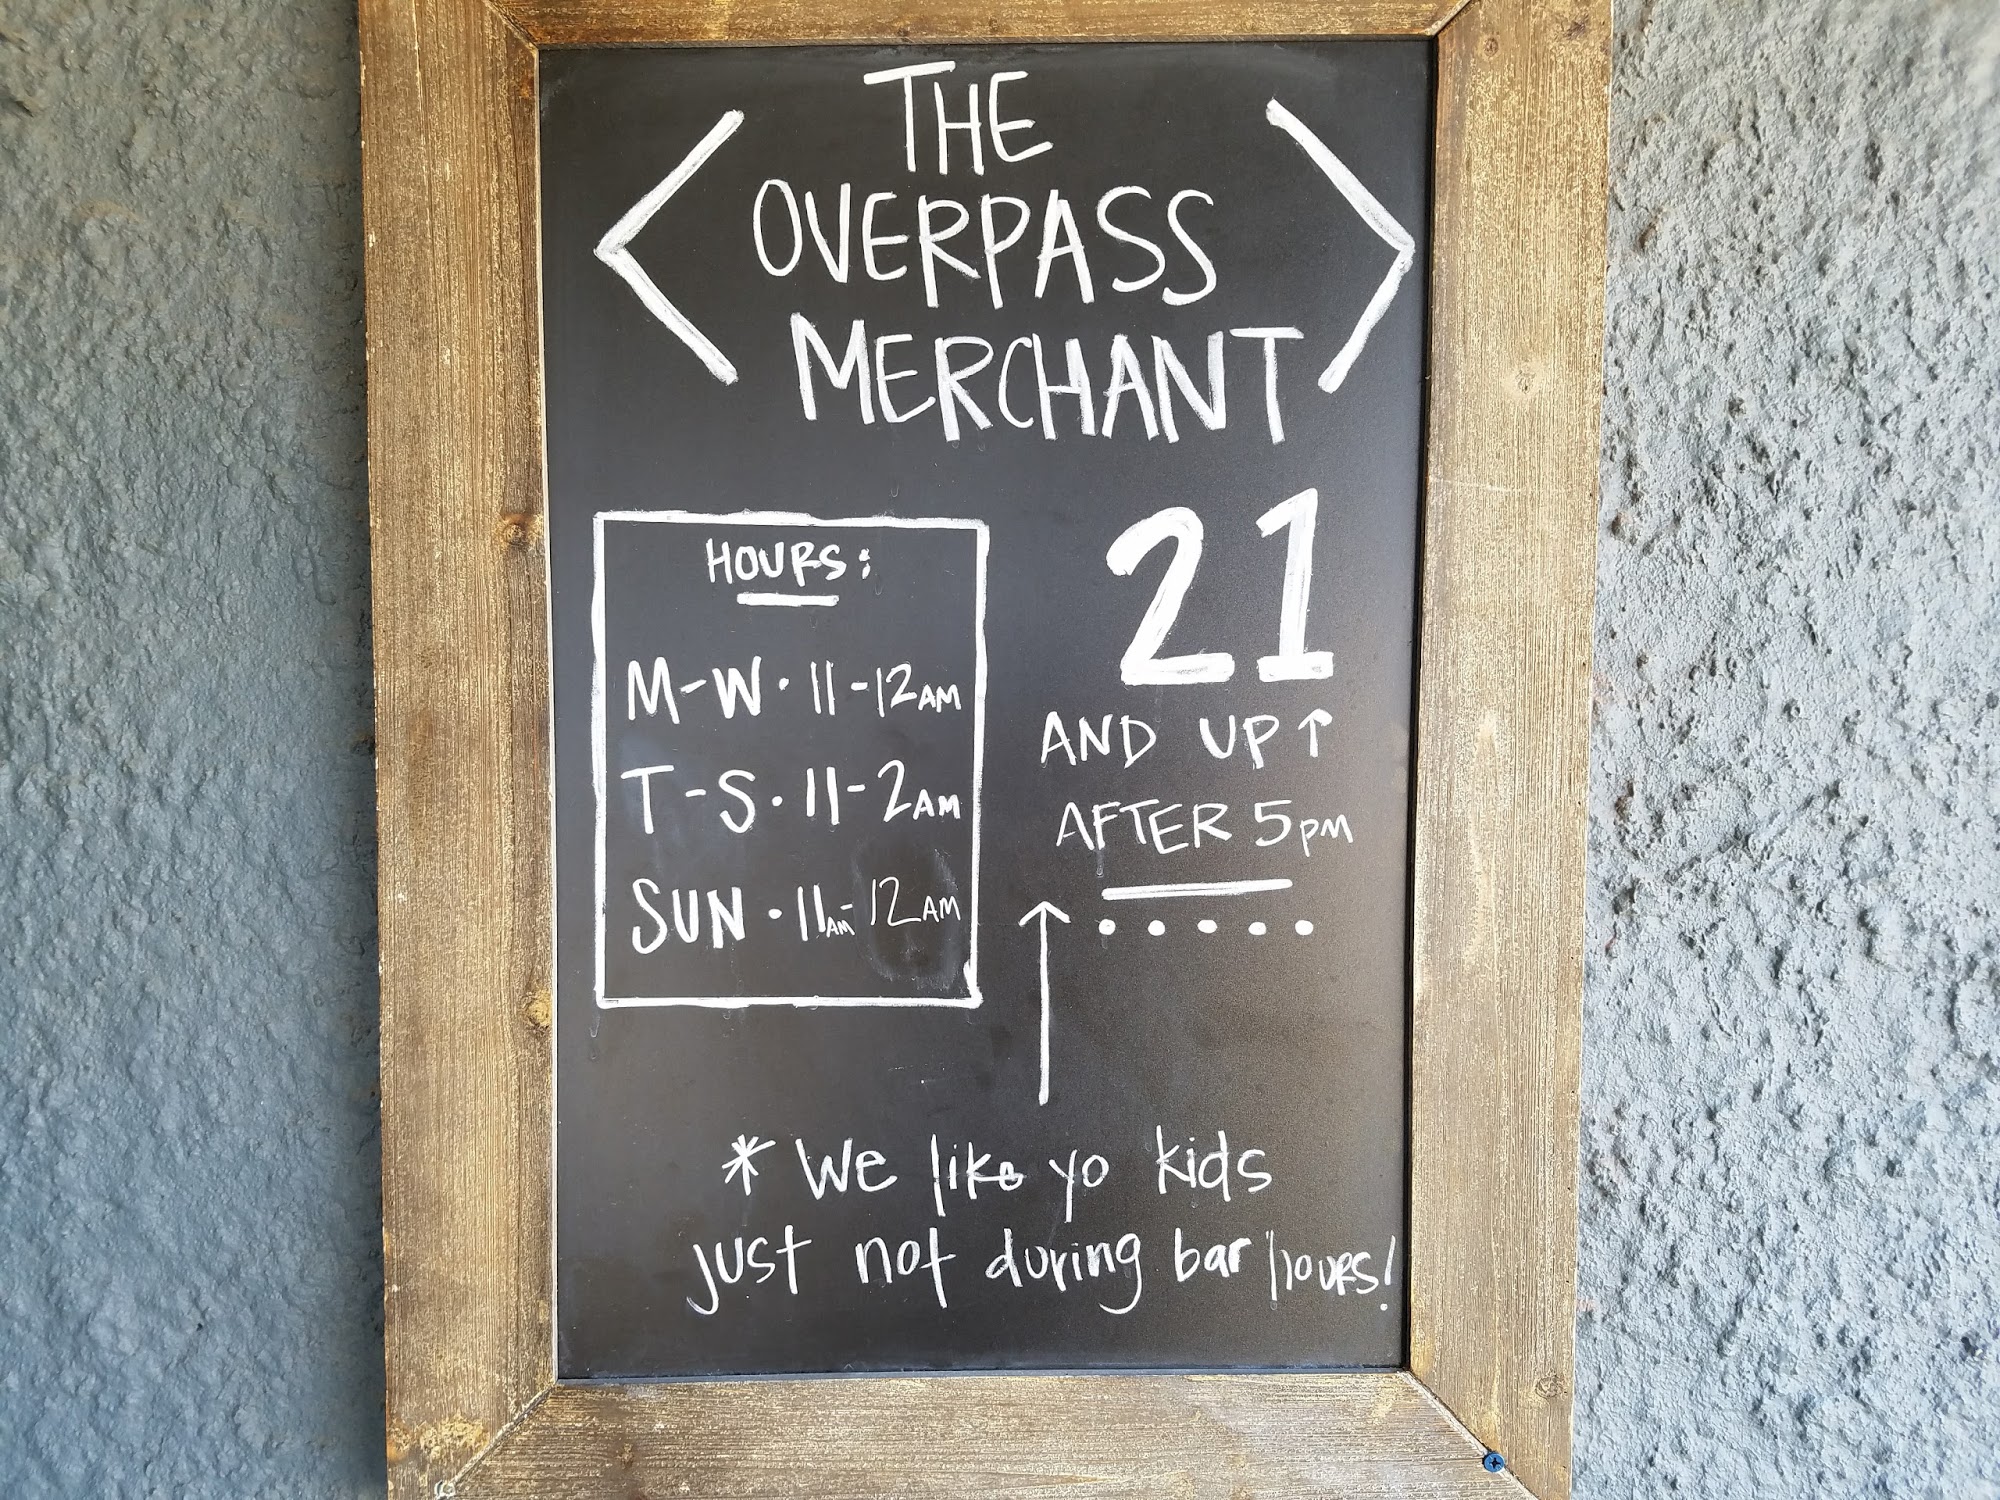 THE
OVERPASS
MERCHANT
HOURS:
M-W · 11-12AM
T-S · 11-2AM
SUN · 11AM-12AM
21
AND UP↑
AFTER 5PM
* We like yo kids
just not during bar hours!